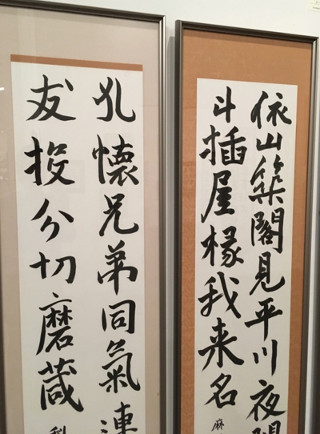 依山築閣見平川夜
斗插屋椽我来名
麻
孔懷兄弟同氣連
友投分切磨箴